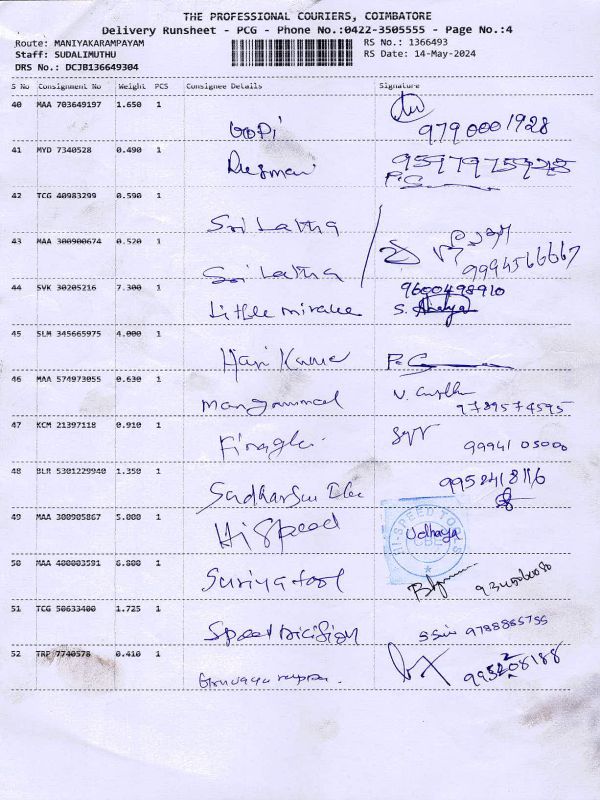 THE PROFESSIONAL COURIERS, COIMBATORE
Delivery Runsheet - PCG - Phone No.:0422-3505555 - Page No.:4
Route: MANIYAKARAMPAYAM RS No.: 1366493
Staff: SUDALIMUTHU RS Date: 14-May-2024
DRS No.: DCJB136649304
S No Consignment No Weight PCS Consignee Details Signature
40 MAA 703649197 1.650 1
Gopi 9790001928
41 MYD 7340528 0.490 1
42 TCG 40983299 0.590 1
Sri Latha
43 MAA 300900674 0.520 1
Sri Latha 9994566667
44 SVK 30205216 7.300 1 9600498910
Little miracle S.
45 SLM 345665975 4.000 1
Hari Kumar
46 MAA 574973055 0.630 1
9789574595
47 KCM 21397118 0.910 1
99941 05000
48 BLR 5301229940 1.350 1
9952418116
49 MAA 300905867 5.000 1
Hi Speed Udhaya
HI-SPEED TOOLS
CBE
50 MAA 400003591 6.800 1
Suriya tool
51 TCG 50633400 1.725 1
9788865755
52 TRP 7740578 0.410 1